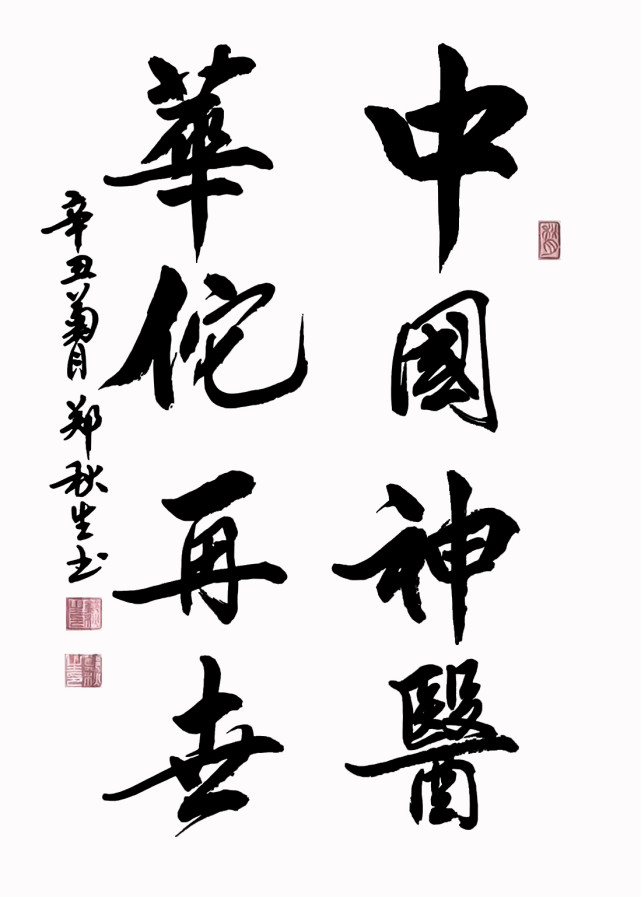 中國神醫
華佗再世
辛丑菊月郑秋生书